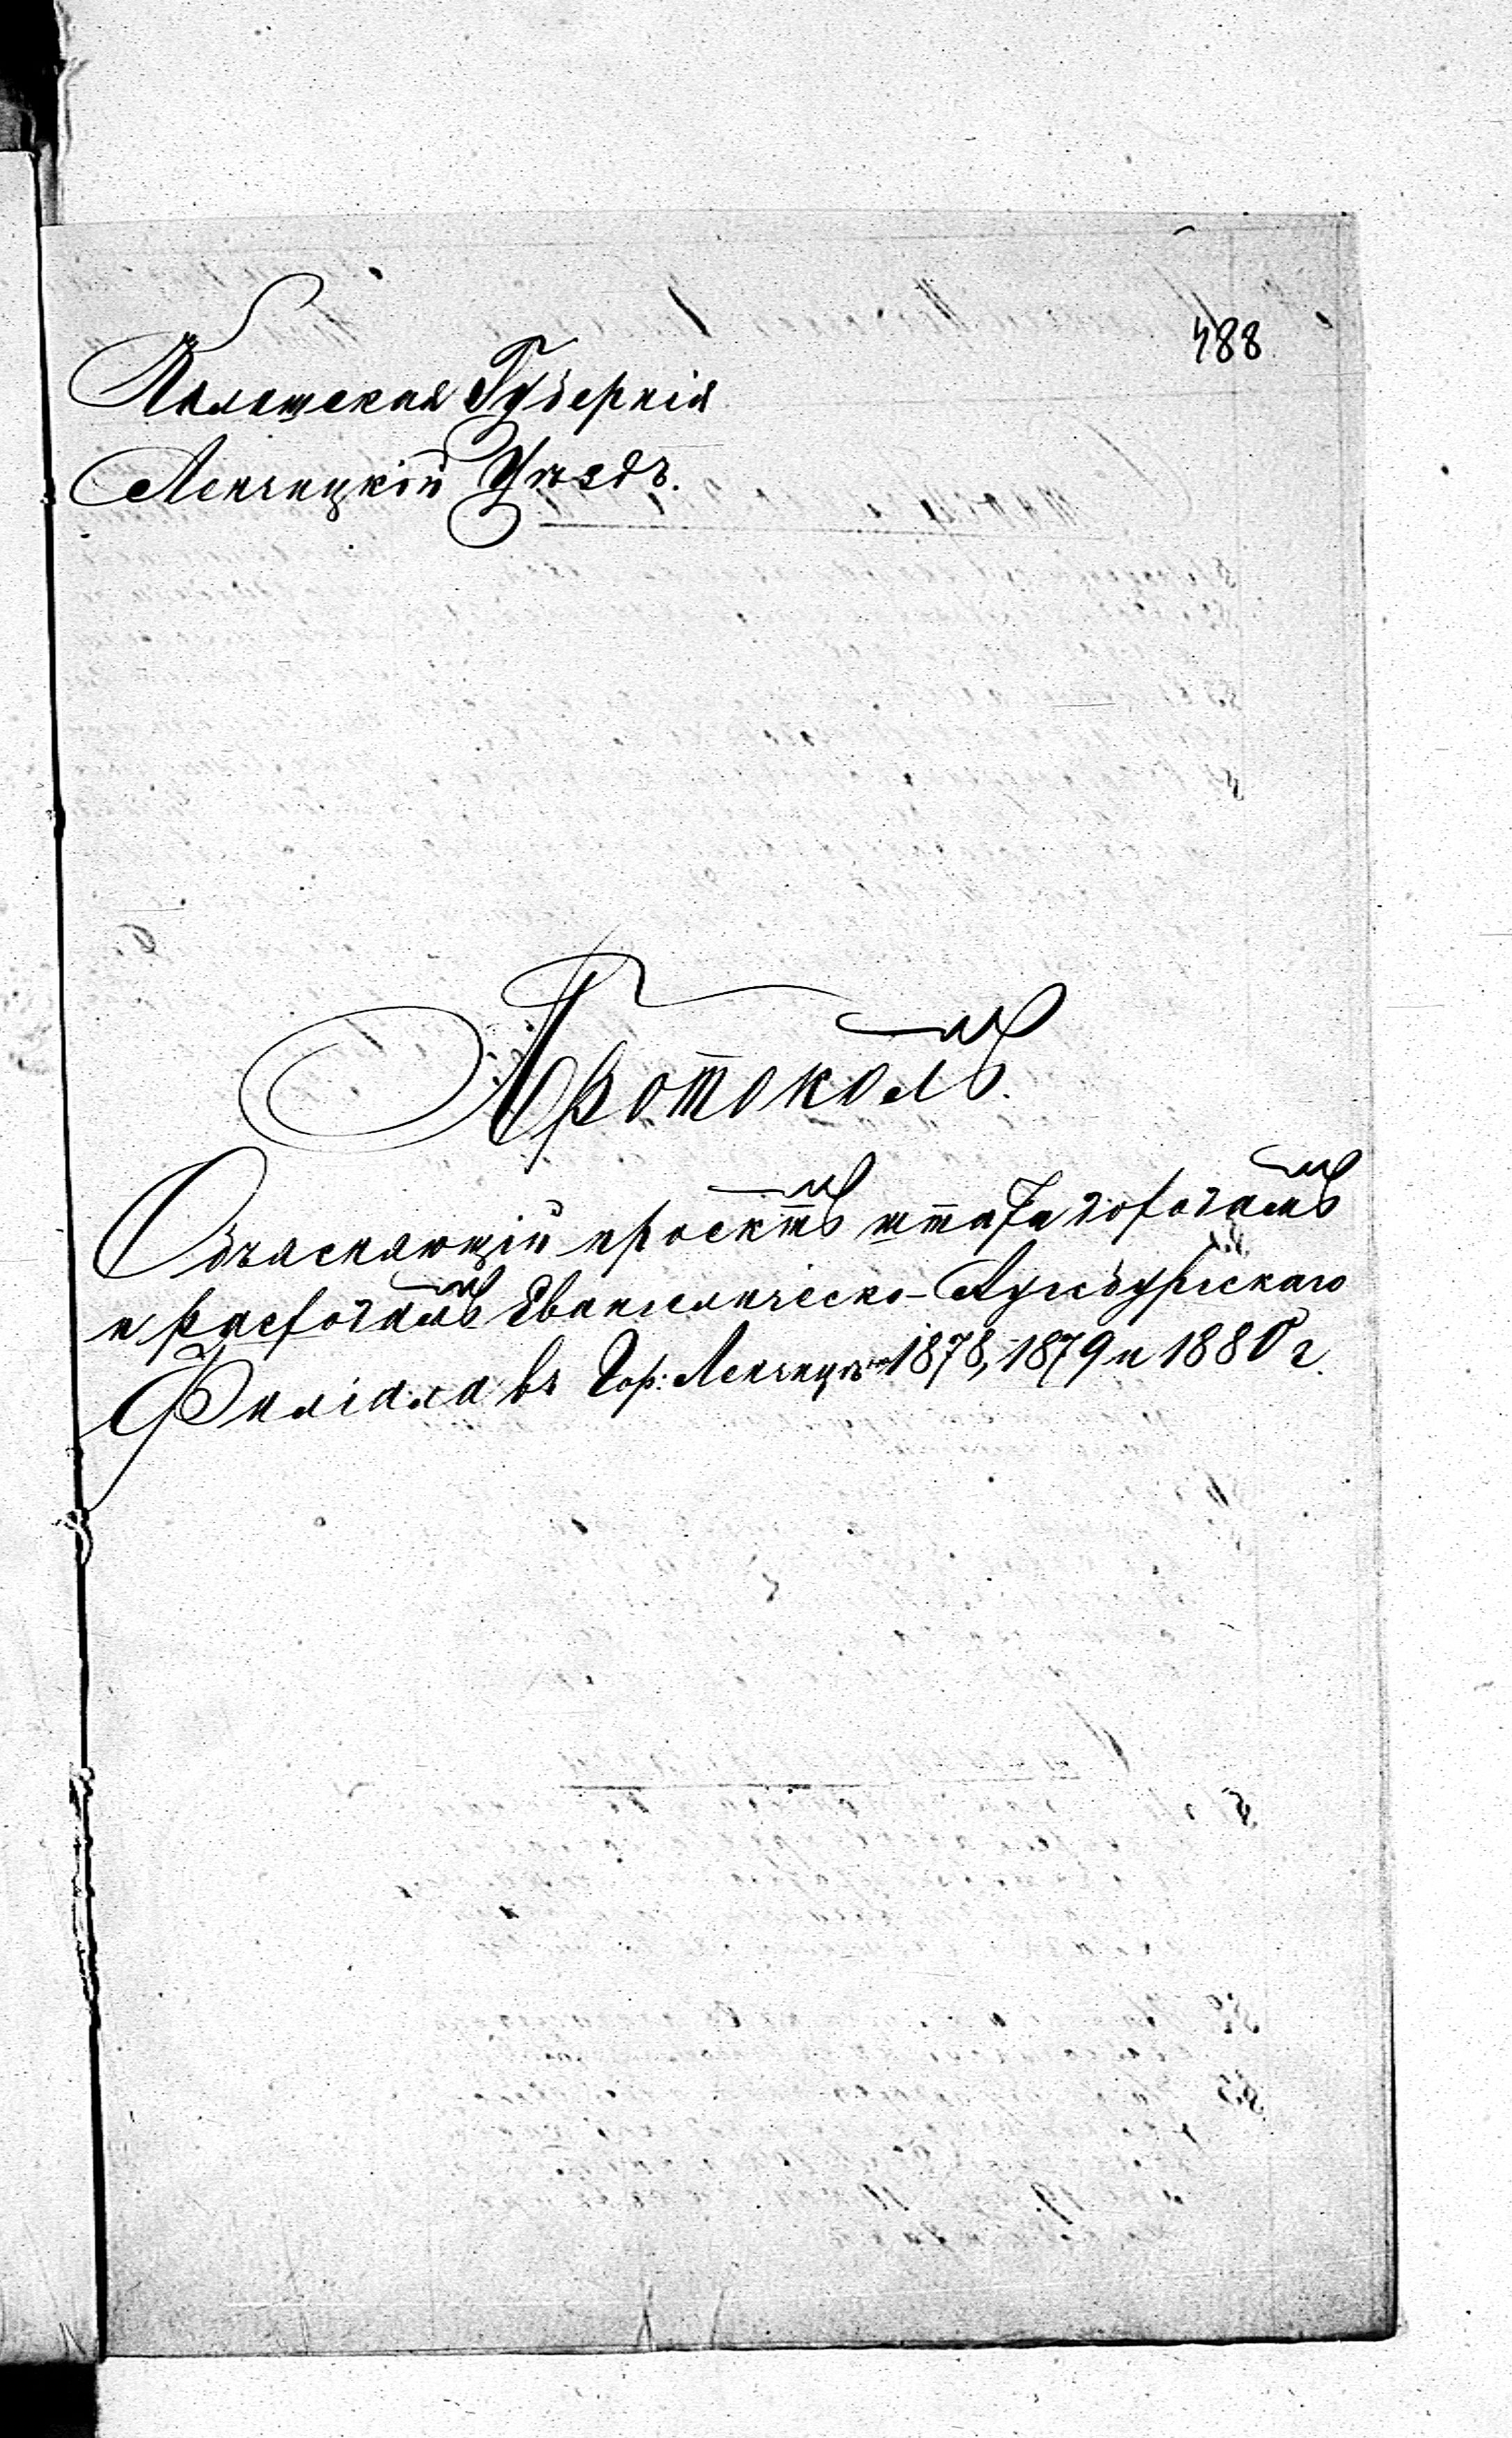 488
Калишская Губернія
Ленчицкій Уѣздъ.
Протоколъ.
Объясняющій проектъ штата доходамъ
и расходамъ Евангелическо-Аугсбургскаго
Филіала въ Гор: Ленчицѣ на 1878, 1879 и 1880 г.